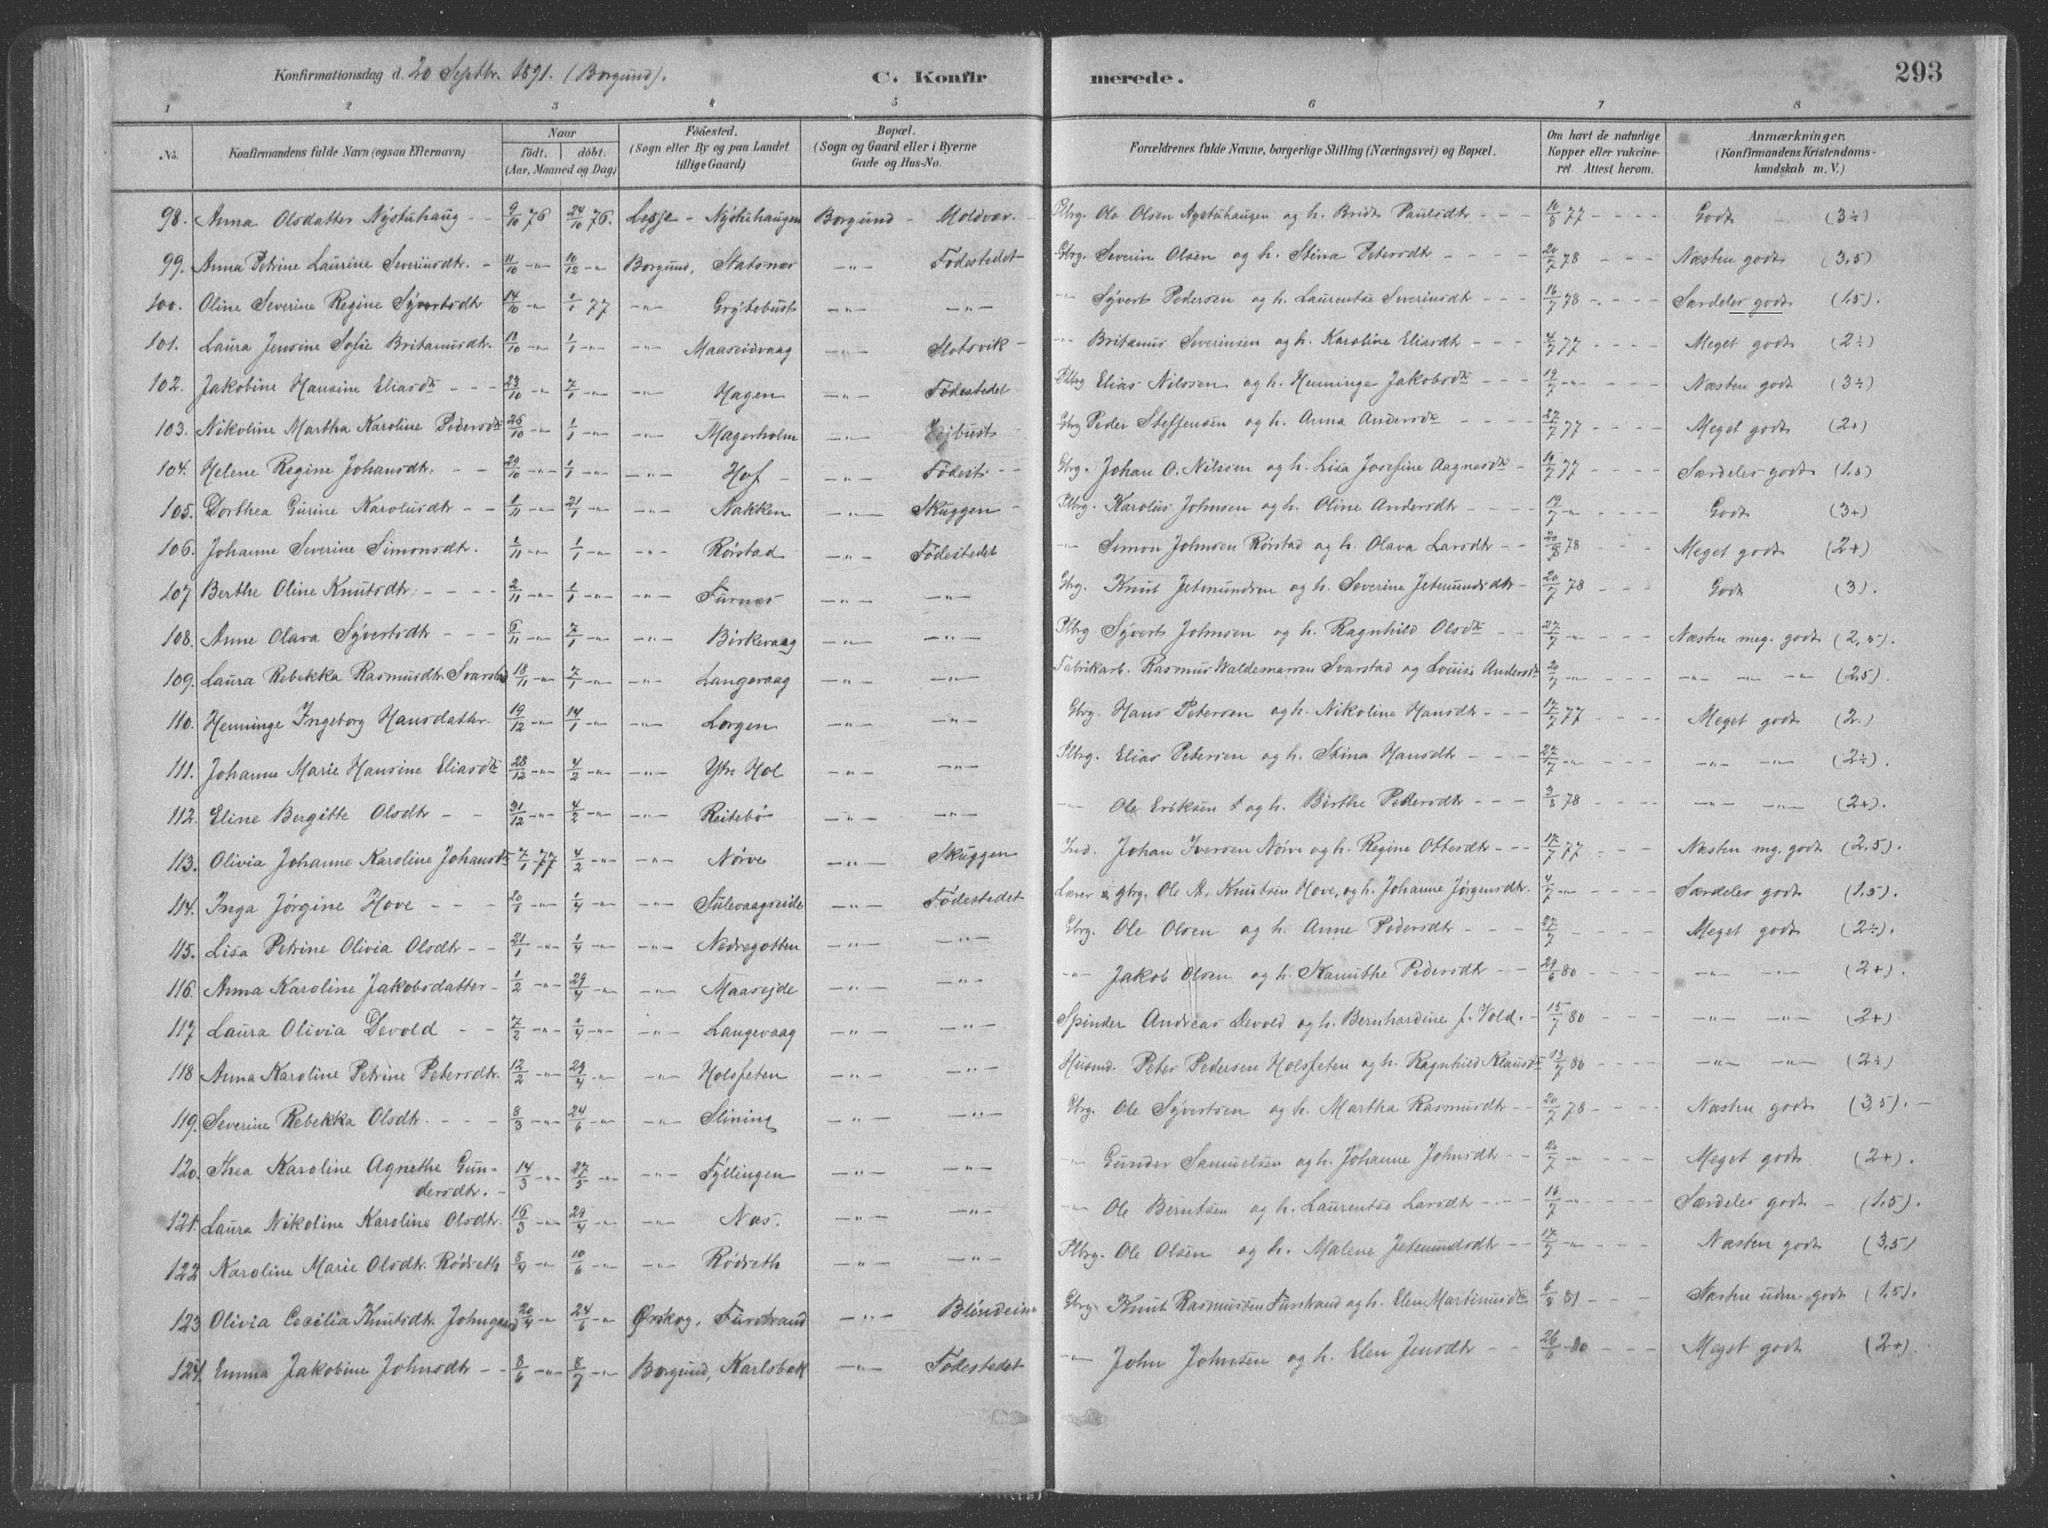 Konfirmationsdag d. 20 Septbr. 1891. (Borgund). C. Konfirmerede. 293
1 2 3 4 5 6 7 8
No. Konfirmandens fulde Navn (ogsaa Efternavn) Naar født. døbt. (Aar, Maaned og Dag) Fødested. (Sogn eller By og paa Landet tillige Gaard) Bopæl. (Sogn og Gaard eller i Byerne Gade og Hus-No. Forældrenes fulde Navne, borgerlige Stilling (Næringsvei) og Bopæl. Om havt de naturlige Kopper eller vakcineret Attest herom. Anmærkninger. (Konfirmandens Kristendomskundskab m. V.)
98. Anna Olsdatter Nystuhaug - - 9/10 76 24/10 76. Lesje - Nystuhaugen Borgund - Moldvær. - Plbrg. Ole Olsen Nystuhaugen og h. Bridt Paulsdtr - - 10/8 77 - - - - Godt - (3÷)
99. Anna Petrine Laurine Severinsdtr. - 11/10 -"- 10/12 -"- Borgund, Statsnes -"- Fødestedet Gbrg. Severin Olsen og h. Stina Petersdtr - - - - 20/7 78 - - - Næsten godt (3,5)
100. Oline Severine Regine Syvertsdtr 14/10 -"- 1/1 77 -"- Grytebust -"- -"- " Syvert Pedersen og h. Laurentse Severinsdtr - - - 16/7 78 - - - - Særdeles godt (1,5).
101. Laura Jensine Sofie Britanusdtr. 18/10 -"- 1/1 -"- -"- Maaseidvaag -"- Slotsvik " Britanus Severinsen og h. Karoline Eliasdtr - - - 4/7 77 - - - - Meget godt (2÷)
102. Jakobine Hansine Eliasdtr - - - 23/10 -"- 7/1 -"- -"- Hagen -"- Fødestedet Plbrg Elias Nilssen og h. Henninge Jakobsdtr - - - 19/7 -"- - - - Næsten godt (3÷)
103. Nikoline Martha Karoline Pedersdtr 26/10 -"- 1/1 -"- -"- Magerholm -"- Gbrg Peder Steffensen og h. Anna Andersdtr - - - - 27/7 77 - - - - Meget godt (2+)
104. Helene Regine Johansdtr. - - 29/10 -"- 1/1 -"- -"- Hof - -"- Fødest. - - Gbrg. Johan O. Nilssen og h. Lisa Josefine Aagnesdtr - 19/7 77 - - - - Særdeles godt (1,5)
105. Dorthea Gurine Karolusdtr - - 1/11 -"- 21/1 -"- -"- Nakken -"- Skuggen - Plbrg. Karolus Johnsen og h. Oline Andersdtr - - - - 19/7 -"- - - - - Godt (3+)
106. Johanne Severine Simonsdtr. 1/11 -"- 1/1 -"- -"- Rørstad -"- Fødestedet " Simon Johnsen Rørstad og h. Olava Larsdtr - - 20/7 78 - - - Meget godt (2+)
107 Berthe Oline Knutsdtr. - - - - 2/11 -"- 1/1 -"- -"- Furnes -"- -"- Gbrg. Knut Jetmundsen og h. Severine Jetmundsdtr - 20/7 78 - - - - Godt (3).
108. Anne Olava Syvertsdtr - - - 6/11 -"- 7/1 -"- -"- Birkevaag -"- -"- Plbrg Syvert Johnsen og h. Ragnhild Olsdtr - - - 27/7 -"- - - - Næsten meg. godt (2,5).
109. Laura Rebekka Rasmusdtr. Svarstad 18/11 -"- 7/1 -"- -"- Langevaag -"- -"- Fabrikarb. Rasmus Waldemarren Svarstad og Louise Andersdtr 20/7 -"- - - - -"- -"- -"- (2,5).
110. Henninge Ingeborg Hansdatter. 19/12 -"- 14/1 -"- -"- Lorgen -"- -"- Gbrg. Hans Petersen og h. Nikoline Hansdtr - - - 17/7 77 - - - - Meget godt (2.)
111. Johanne Marie Hansine Eliasdtr 28/12 -"- 4/2 -"- -"- Ytre Hol -"- -"- Plbrg. Elias Petersen og h. Stina Hansdtr - - - - 27/7 -"- - - - -"- -"- (2÷).
112. Eline Bergitte Olsdtr - - 31/12 -"- 4/2 -"- -"- Reitebø -"- -"- " Ole Eriksen † og h. Birthe Pedersdtr - - - 3/8 78 - - - -"- -"- (2+).
113. Olivia Johanne Karoline Johansdtr 7/1 77 4/2 -"- -"- Nørve -"- Skuggen Ind. Johan Iversen Nørve og h. Regine Ottersdtr - - 17/7 77 - - - Næsten mg. godt (2,5).
114. Inga Jørgine Hove - - - 20/1 -"- 1/4 -"- -"- Sulevaagseide -"- Fødestedet Lærer & gbrg. Ole A. Knutsen Hove, og h. Johanne Jørgensdtr. 4/7 -"- - - - Særdeles godt (1,5).
115. Lisa Petrine Olivia Olsdtr - - 21/1 -"- 1/4 -"- -"- Nedregotten -"- -"- Gbrg. Ole Olsen og h. Anne Pedersdtr - - - 27/7 - - - - Meget godt (2÷).
116. Anna Karoline Jakobsdatter - 1/2 -"- 29/4 -"- -"- Maasejde -"- -"- -"- Jakob Olsen og h. Kanuthe Pedersdtr - - 29/6 80 - - - -"- -"- (2+).
117 Laura Olivia Devold - - 7/2 -"- 1/4 -"- -"- Langevaag -"- -"- Spinder Andreas Devold og h. Bernhardine f. Vold. - 15/7 80 - - - -"- -"- (2+)
118 Anna Karoline Petrine Petersdtr. 12/2 -"- 29/4 -"- -"- Holsfeten -"- -"- Husmd. Peter Pedersen Holsfeten og h. Ragnhild Klausdtr 13/7 80 - - - -"- -"- (2÷)
119. Severine Rebekka Olsdtr. - - - 8/3 -"- 24/6 -"- -"- Slining -"- -"- Gbrg. Ole Syvertsen og h. Martha Rasmusdtr - - 20/7 78 - - - - Næsten godt (3,5). -
120. Thea Karoline Agnethe Gun- 14/3 -"- 27/5 -"- -"- Fyllingen -"- -"- " Gunder Samuelsen og h. Johanne Johnsdtr - - 20/7 -"- - - - Meget godt (2+).
dersdtr. -
121. Laura Nikoline Karoline Olsdtr. 16/3 -"- 29/4 -"- -"- Næs. -"- -"- -"- Ole Berntsen og h. Laurentse Larsdtr - - - 16/7 -"- - - - Særdeles godt - (1,5).
122 Karoline Marie Olsdtr. Rødseth 8/4 -"- 10/6 -"- -"- Rødseth -"- -"- Plbrg. Ole Olsen og h. Malene Jetmundsdtr - - 17/7 -"- - - - Næsten godt (3,5)
123 Olivia Cecilia Knutsdtr. 20/4 -"- 24/6 -"- Ørskog, Furstrand -"- Blindeim Gbrg. Knut Rasmussen Furstrand og h. Elen Martinusdtr 6/8 81 - - - godt (1,5).
124. Emma Jakobine Johnsdtr - - 8/6 -"- 8/7 -"- Borgund, Karlsbak -"- Fødestedet -"- John Johnsen og h. Elen Jensdtr - - - 26/6 80 - - - Meget godt (2+).